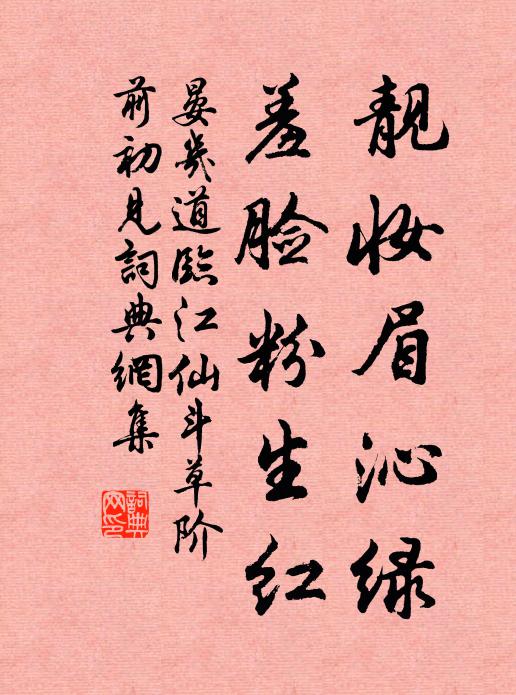 靓妆眉沁绿
羞脸粉生红
晏幾道臨江仙斗草阶
前初見詞典網集
詞典网印